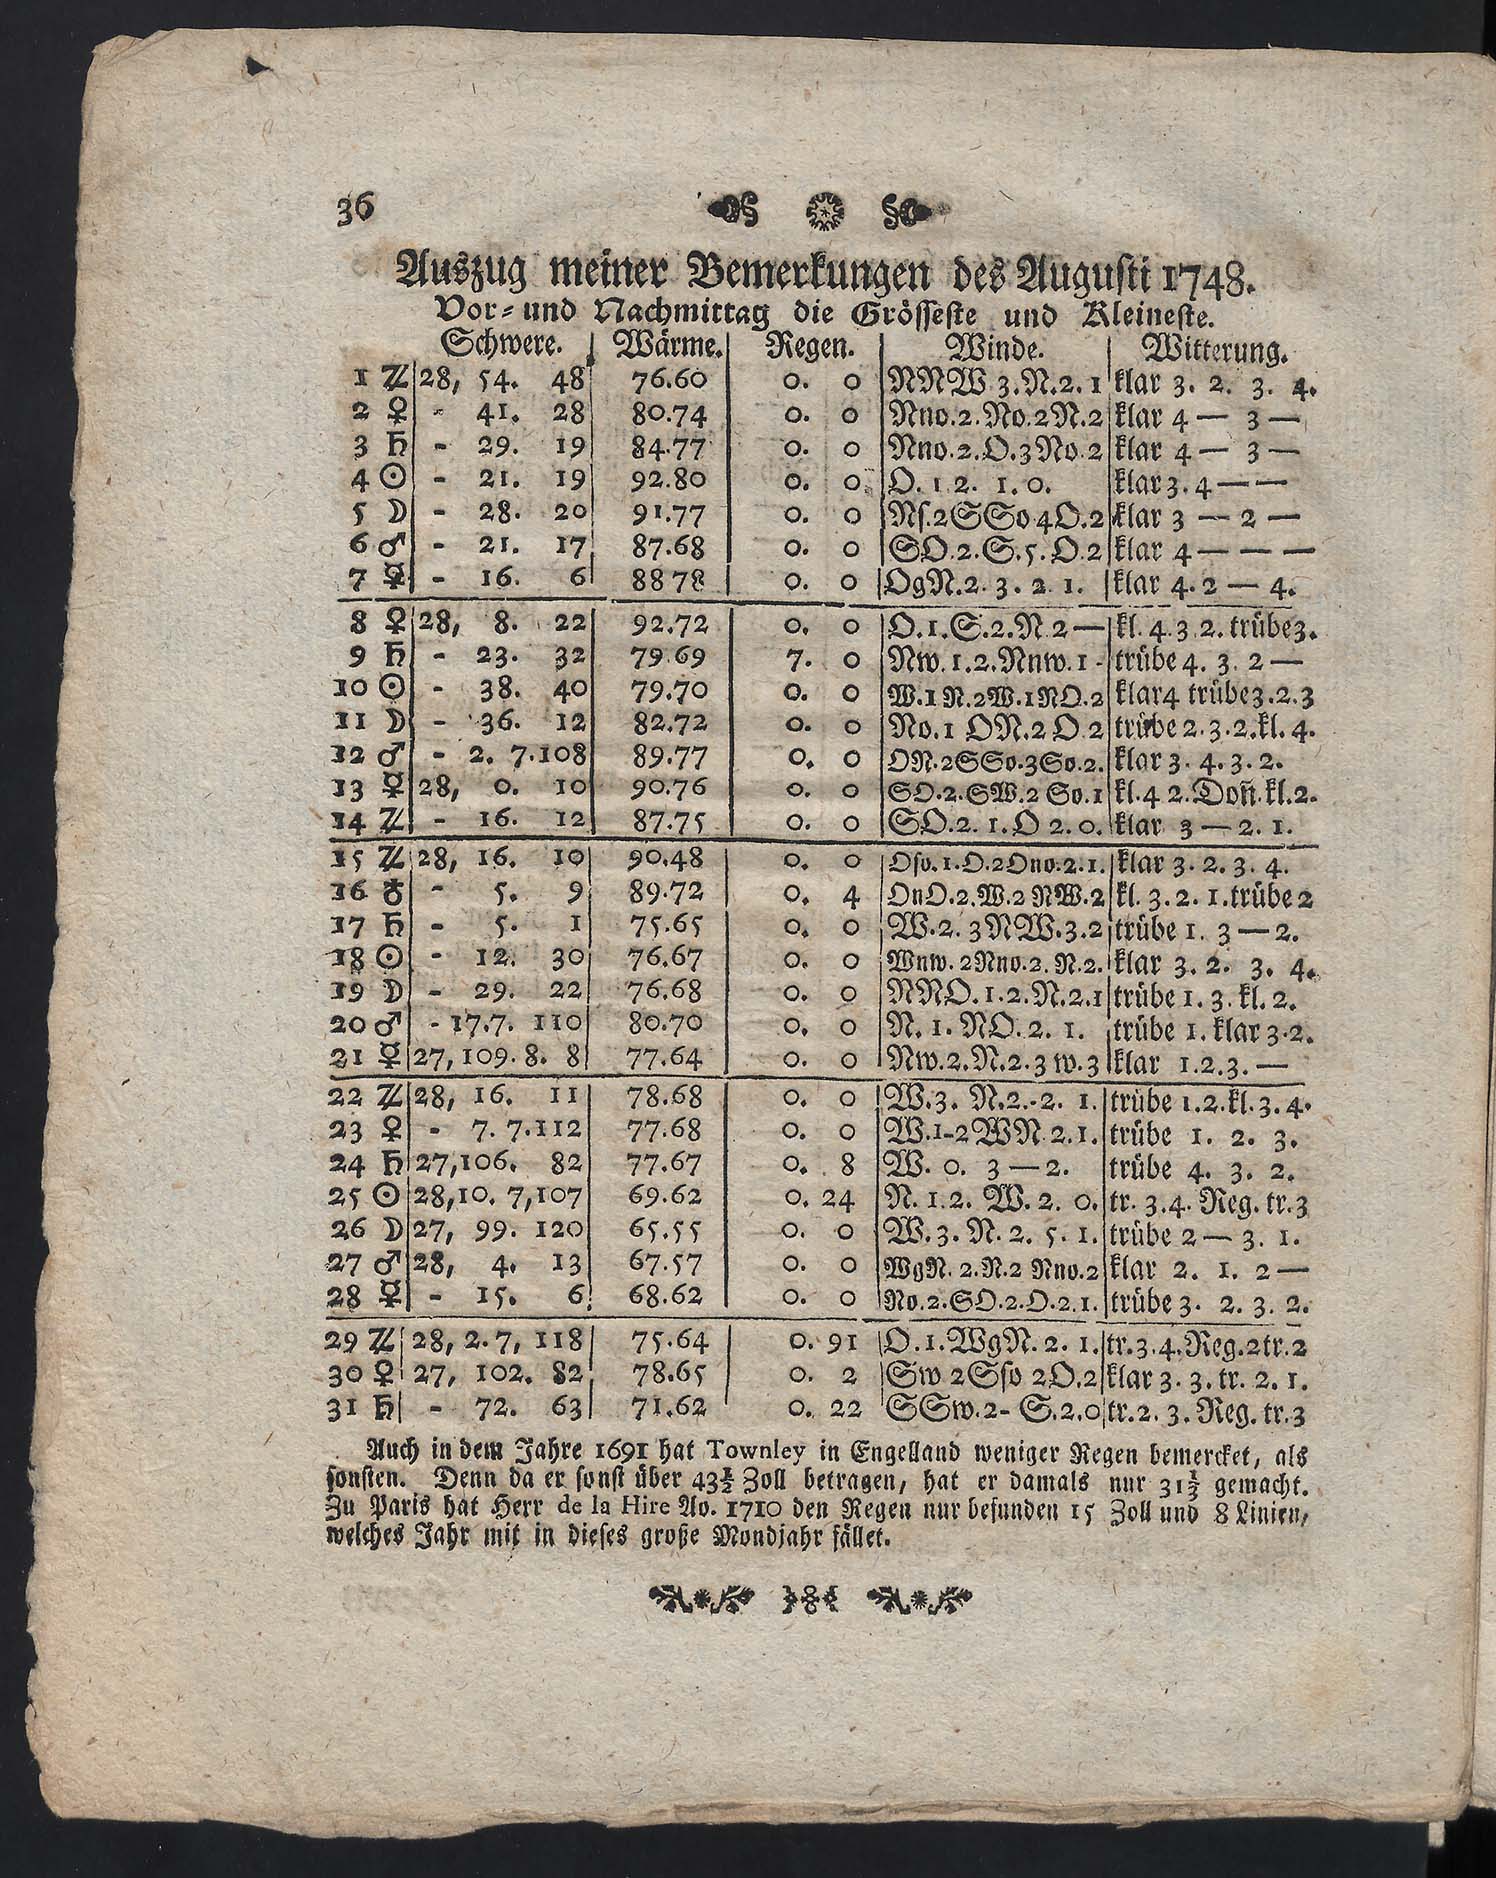 36
Auszug meiner Bemerkungen des Augusti 1748.
Vor- und Nachmittag die Grösseste und Kleineste.
Schwere. Wärme. Regen. Winde. Witterung.
1 ♃ 28, 54. 48 76.60 0. 0 NNW 3.N.2.1 klar 3. 2. 3. 4.
2 ♀ - 41. 28 80.74 0. 0 Nno.2.No.2N.2 klar 4 — 3 —
3 ♄ - 29. 19 84.77 0. 0 Nno.2.O.3No.2 klar 4 — 3 —
4 ☉ - 21. 19 92.80 0. 0 O. 1 2. 1. 0. klar 3. 4 — —
5 ☽ - 28. 20 91.77 0. 0 Ns.2SSo4O.2 klar 3 — 2 —
6 ♂ - 21. 17 87.68 0. 0 SO.2.S.5.O.2 klar 4 — — —
7 ☿ - 16. 6 88 78 0. 0 OgN.2.3.2 1. klar 4.2 — 4.
8 ♀ 28, 8. 22 92.72 0. 0 O.1.S.2.N 2 — kl. 4.3 2. trübe3.
9 ♄ - 23. 32 79.69 7. 0 Nw.1.2.Nnw.1 - trübe 4. 3. 2 —
10 ☉ - 38. 40 79.70 0. 0 W.1 N.2W.1NO.2 klar4 trübe3.2.3
11 ☽ - 36. 12 82.72 0. 0 No.1 ON.2 O.2 trübe 2.3.2.kl. 4.
12 ♂ - 2. 7.108 89.77 0. 0 ON.2SSo.3So.2. klar 3. 4. 3. 2.
13 ☿ 28, 0. 10 90.76 0. 0 SO.2.SW.2 So.1 kl.4 2.Doñ.kl.2.
14 ♃ - 16. 12 87.75 0. 0 SO.2. 1.O 2.0. klar 3 — 2. 1.
15 ♃ 28, 16. 10 90.48 0. 0 Oso.1.O.2Ono.2.1. klar 3. 2. 3. 4.
16 ♁ - 5. 9 89.72 0. 4 OnO.2.W.2 NW.2 kl. 3.2. 1.trübe 2
17 ♄ - 5. 1 75.65 0. 0 W.2. 3NW.3.2 trübe 1. 3 — 2.
18 ☉ - 12. 30 76.67 0. 0 Wnw. 2Nno.2. N.2. klar 3. 2. 3. 4.
19 ☽ - 29. 22 76.68 0. 0 NNO.1.2.N.2.1 trübe 1. 3. kl. 2.
20 ♂ - 17.7. 110 80.70 0. 0 N. 1. NO. 2. 1. trübe 1. klar 3.2.
21 ☿ 27, 109. 8. 8 77.64 0. 0 Nw.2.N.2.3 w.3 klar 1.2.3. —
22 ♃ 28, 16. 11 78.68 0. 0 W.3. N.2.-2. 1. trübe 1.2.kl.3.4.
23 ♀ - 7. 7.112 77.68 0. 0 W.1-2 WN 2.1. trübe 1. 2. 3.
24 ♄ 27,106. 82 77.67 0. 8 W. 0. 3 — 2. trübe 4. 3. 2.
25 ☉ 28,10. 7,107 69.62 0. 24 N. 1.2. W. 2. 0. tr. 3.4. Reg. tr.3
26 ☽ 27, 99. 120 65.55 0. 0 W.3.N. 2. 5. 1. trübe 2 — 3. 1.
27 ♂ 28, 4. 13 67.57 0. 0 WgN. 2.N.2 Nno.2 klar 2. 1. 2 —
28 ☿ - 15. 6 68.62 0. 0 No.2.SO.2.O.2.1. trübe 3. 2. 3. 2.
29 ♃ 28, 2.7, 118 75.64 0. 91 O.1.WgN. 2. 1. tr.3.4.Reg.2tr.2
30 ♀ 27, 102. 82 78.65 0. 2 Sw 2Sso 2O.2 klar 3. 3. tr. 2. 1.
31 ♄ - 72. 63 71.62 0. 22 SSw.2- S.2.0 tr.2. 3. Reg. tr.3
Auch in dem Jahre 1691 hat Townley in Engelland weniger Regen bemercket, als
sonsten. Denn da er sonst über 43½ Zoll betragen, hat er damals nur 31⅓ gemacht.
Zu Paris hat Herr de la Hire Ao. 1710 den Regen nur befunden 15 Zoll und 8 Linien,
welches Jahr mit in dieses große Mondjahr fället.